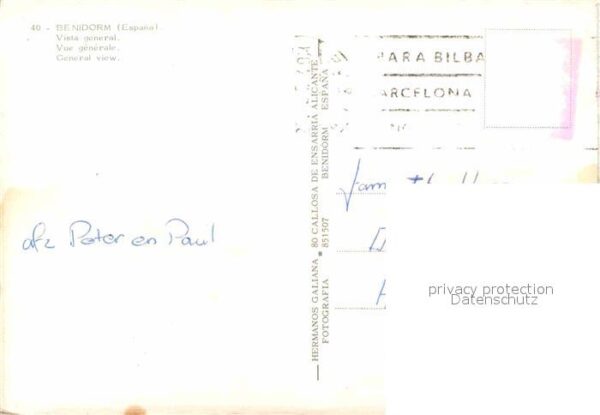 40 - BENIDORM (España).
Vista general.
Vue générale.
General view.
PARA BILBA
BARCELONA
HERMANOS GALIANA. 80 CALLOSA DE ENSARRIÁ ALICANTE
FOTOGRAFIA 851507 BENIDORM ESPAÑA
afz Peter en Paul
fam
privacy protection
Datenschutz